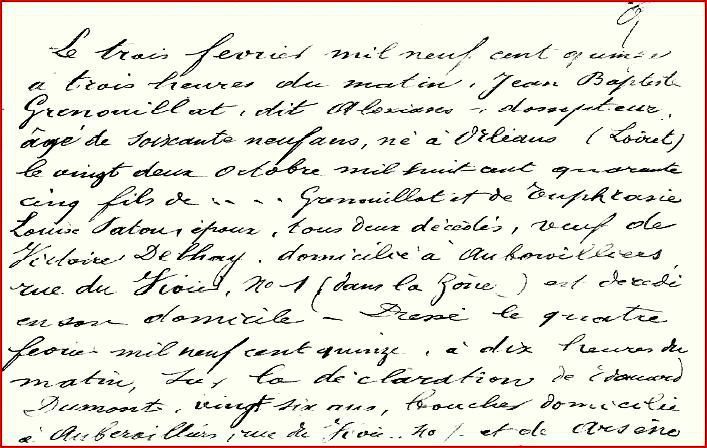 Le trois fevrier mil neuf cent quinze
à trois heures du matin, Jean Baptiste
Grenouillat, dit Alexiano, dompteur,
âgé de soixante neuf ans, né à Orléans (Loiret)
le vingt deux octobre mil huit cent quarante
cinq fils de .. .. Grenouillat et de Euphrasie
Louise Patou, époux, tous deux décédés, veuf de
Victoire Delhay, domicilié à Aubervilliers
rue du Vivier, No 1 (dans la Zône) est decedé
en son domicile - Dressé le quatre
fevrier mil neuf cent quinze, à dix heures du
matin, sur la déclaration de Edouard
Dumont, vingt six ans, boucher domicilié
à Aubervilliers, rue du Vivier No 1 et de Arsène